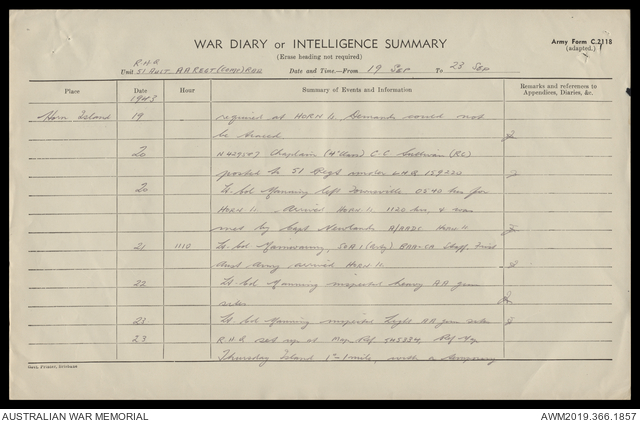 WAR DIARY or INTELLIGENCE SUMMARY
(Erase heading not required)
Army Form C.2118
(adapted.)
R.H.Q
Unit 51 Aust. AA REGT (Comp) RAA Date and Time—From 19 SEP To 23 SEP
Place Date Hour Summary of Events and Information Remarks and references to Appendices, Diaries, &c.
1943
Horn Island 19 required at HORN Is. Demands could not
be traced.
20 Chaplain C.C. Sullivan (RC)
posted to 51 Regt under LHQ 159220
20 Lt. Col Manning left Townsville 0540 hrs for
HORN Is. Arrived HORN Is. 1120 hrs, & was
met by Capt Newlands A/AADC HORN Is
21 1110 Lt. Col SORI BRA-CA Staff, First
Aust Army arrived HORN Is.
22 Lt Col Manning inspected heavy AA gun
sites
23 Lt. Col Manning inspected Light AA gun sites
23 R.H.Q set up at Map Ref
Thursday Island 1"-1 mile, with a temporary
Govt. Printer, Brisbane
AUSTRALIAN WAR MEMORIAL
AWM2019.366.1857